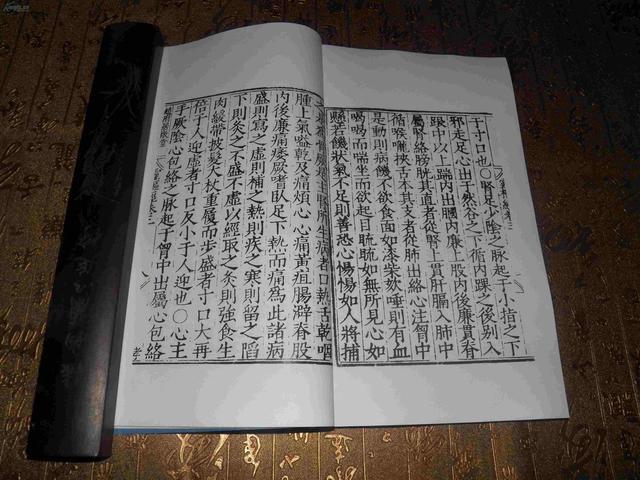 于寸口也○腎足少陰之脉起于小指之下
邪走足心出于然谷之下循内踝之後别入
跟中以上踹内出膕内廉上股内後廉貫脊
屬腎絡膀胱其直者從腎上貫肝膈入肺中
循喉嚨挾舌本其支者從肺出絡心注胷中
是動則病饑不欲食面如漆柴欬唾則有血
喝喝而喘坐而欲起目䀮䀮如無所見心如
懸若饑狀氣不足則善恐心惕惕如人將捕
之是爲骨厥是主腎所生病者口熱舌乾咽
腫上氣嗌乾及痛煩心心痛黄疸腸辟脊股
内後廉痛痿厥嗜臥足下熱而痛爲此諸病
盛則寫之虚則補之熱則疾之寒則留之陷
下則灸之不盛不虚以經取之灸則強食生
肉緩帶披髮大杖重履而步盛者寸口大再
倍于人迎虚者寸口反小于人迎也○心主
手厥陰心包絡之脉起于胷中出屬心包絡